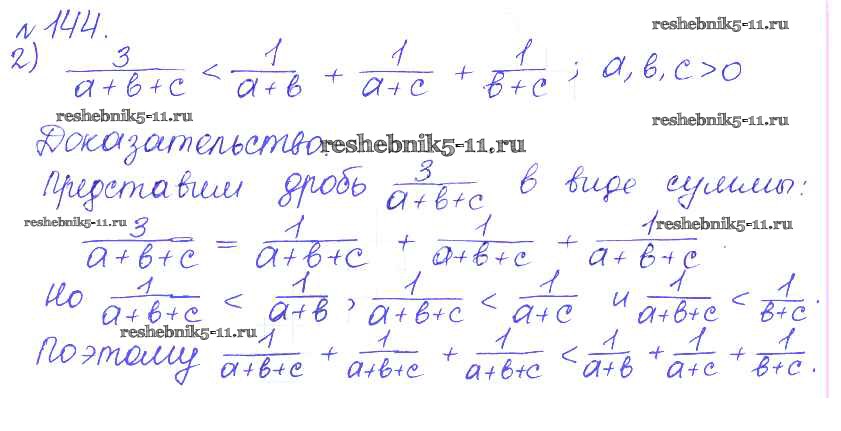 № 144.
reshebnik5-11.ru
2) 3/(a+b+c) < 1/(a+b) + 1/(a+c) + 1/(b+c) ; a, b, c > 0
reshebnik5-11.ru reshebnik5-11.ru
Доказательство. reshebnik5-11.ru
Представим дробь 3/(a+b+c) в виде суммы:
reshebnik5-11.ru reshebnik5-11.ru
3/(a+b+c) = 1/(a+b+c) + 1/(a+b+c) + 1/(a+b+c)
Но 1/(a+b+c) < 1/(a+b) , 1/(a+b+c) < 1/(a+c) и 1/(a+b+c) < 1/(b+c) .
reshebnik5-11.ru
Поэтому 1/(a+b+c) + 1/(a+b+c) + 1/(a+b+c) < 1/(a+b) + 1/(a+c) + 1/(b+c) .